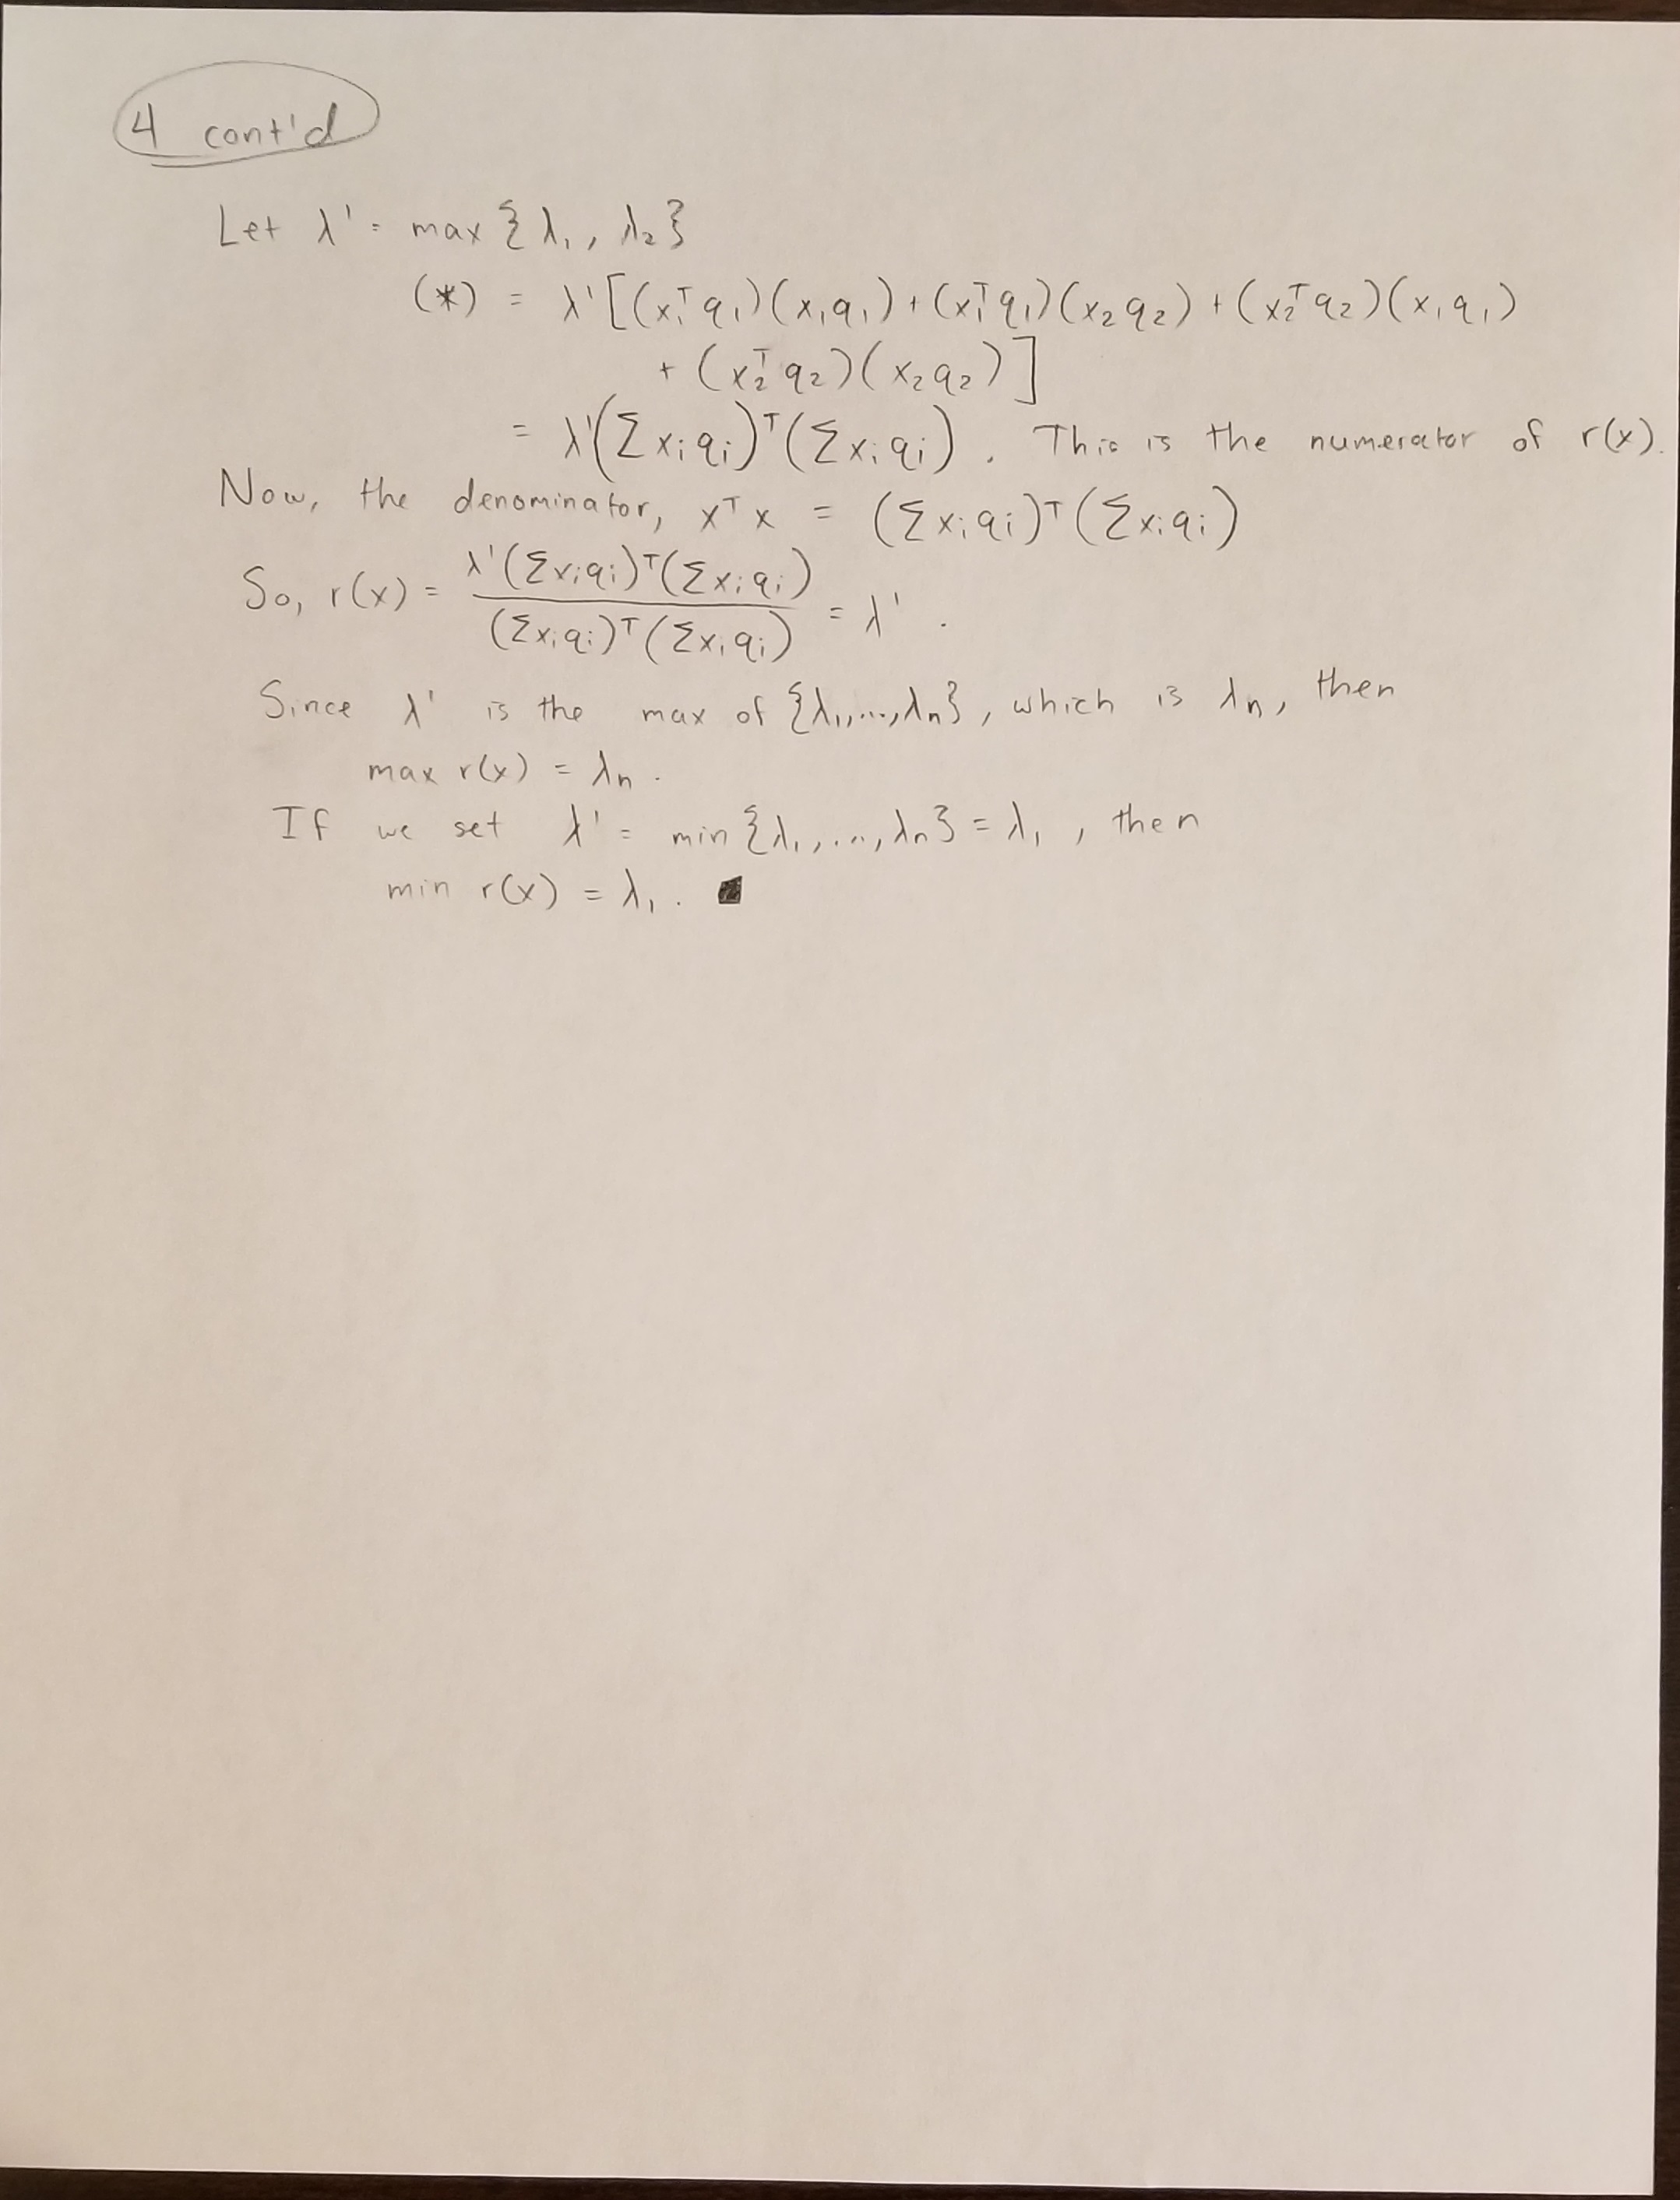 4 cont'd
Let λ' = max {λ₁, λ₂}
(*) = λ'[(x₁ᵀq₁)(x₁q₁) + (x₁ᵀq₁)(x₂q₂) + (x₂ᵀq₂)(x₁q₁)
+ (x₂ᵀq₂)(x₂q₂)]
= λ'(Σxᵢqᵢ)ᵀ(Σxᵢqᵢ). This is the numerator of r(x).
Now, the denominator, xᵀx = (Σxᵢqᵢ)ᵀ(Σxᵢqᵢ)
So, r(x) = λ'(Σxᵢqᵢ)ᵀ(Σxᵢqᵢ) / (Σxᵢqᵢ)ᵀ(Σxᵢqᵢ) = λ'.
Since λ' is the max of {λ₁,...,λₙ}, which is λₙ, then
max r(x) = λₙ.
If we set λ' = min {λ₁,...,λₙ} = λ₁, then
min r(x) = λ₁. ■